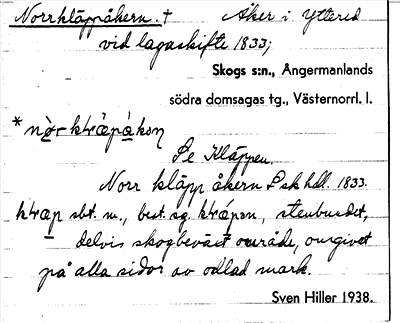 Norrkläppåkern. † Åker i Yttered
vid lagaskifte 1833;
Skogs s:n., Ångermanlands
södra domsagas tg., Västernorrl. l.
Se Kläppen.
Norr kläpp åkern Lsk hdl. 1833.
sbt. m., best. sg. stenbundet,
delvis skogbeväxt område, omgivet
på alla sidor av odlad mark.
Sven Hiller 1938.